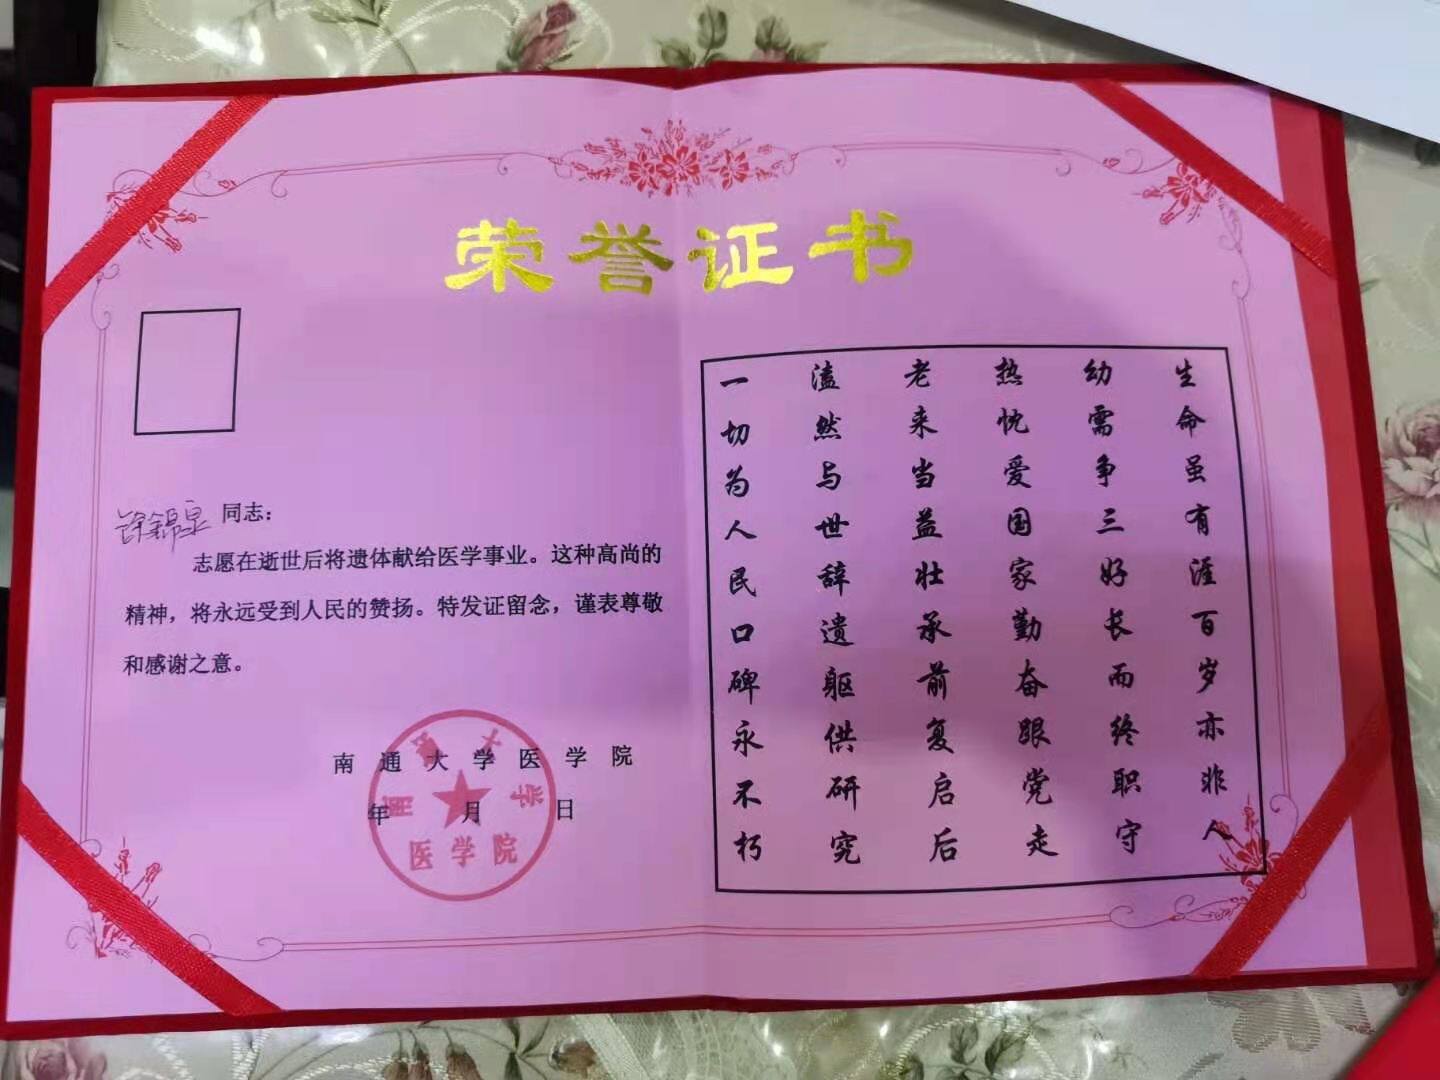 荣誉证书
同志：
志愿在逝世后将遗体献给医学事业。这种高尚的
精神，将永远受到人民的赞扬。特发证留念，谨表尊敬
和感谢之意。
南通大学医学院
年 月 日
南通大学
医学院
生命虽有涯百岁亦非人
幼需争三好长而终职守
热忱爱国家勤奋跟党走
老来当益壮承前复启后
溘然与世辞遗躯供研究
一切为人民口碑永不朽